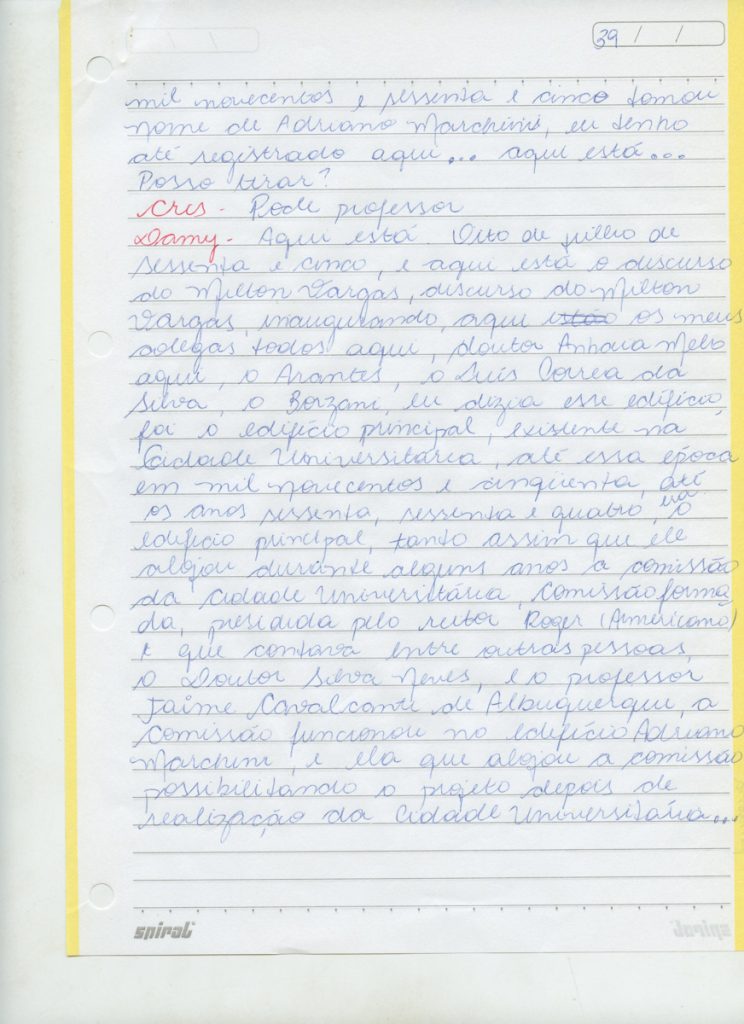 39 / /
mil novecentos e sessenta e cinco tomou
nome de Adriano Marchini, eu tenho
até registrado aqui... aqui está...
Posso tirar?
Cris - Pode professor
Damy - Aqui está. Oito de julho de
sessenta e cinco, e aqui está o discurso
do Milton Vargas, discurso do Milton
Vargas, inaugurando, aqui os meus
colegas todos aqui, doutor Anhaia Mello
aqui, o Arantes, o Luís Correa da
Silva, o Borzani, eu dizia esse edifício,
foi o edifício principal, existente na
Cidade Universitária, até essa época
em mil novecentos e cinqüenta, até
os anos sessenta, sessenta e quatro, era o
edifício principal, tanto assim que ele
alojou durante alguns anos a comissão
da Cidade Universitária, comissão forma
da, presidida pelo reitor Roger (Americano)
e que contava entre outras pessoas,
o Doutor Silva Neves, e o professor
Jaime Cavalcanti de Albuquerque, a
comissão funcionou no edifício Adriano
Marchini, e ela que alojou a comissão
possibilitando o projeto depois de
realização da Cidade Universitária...
spiral